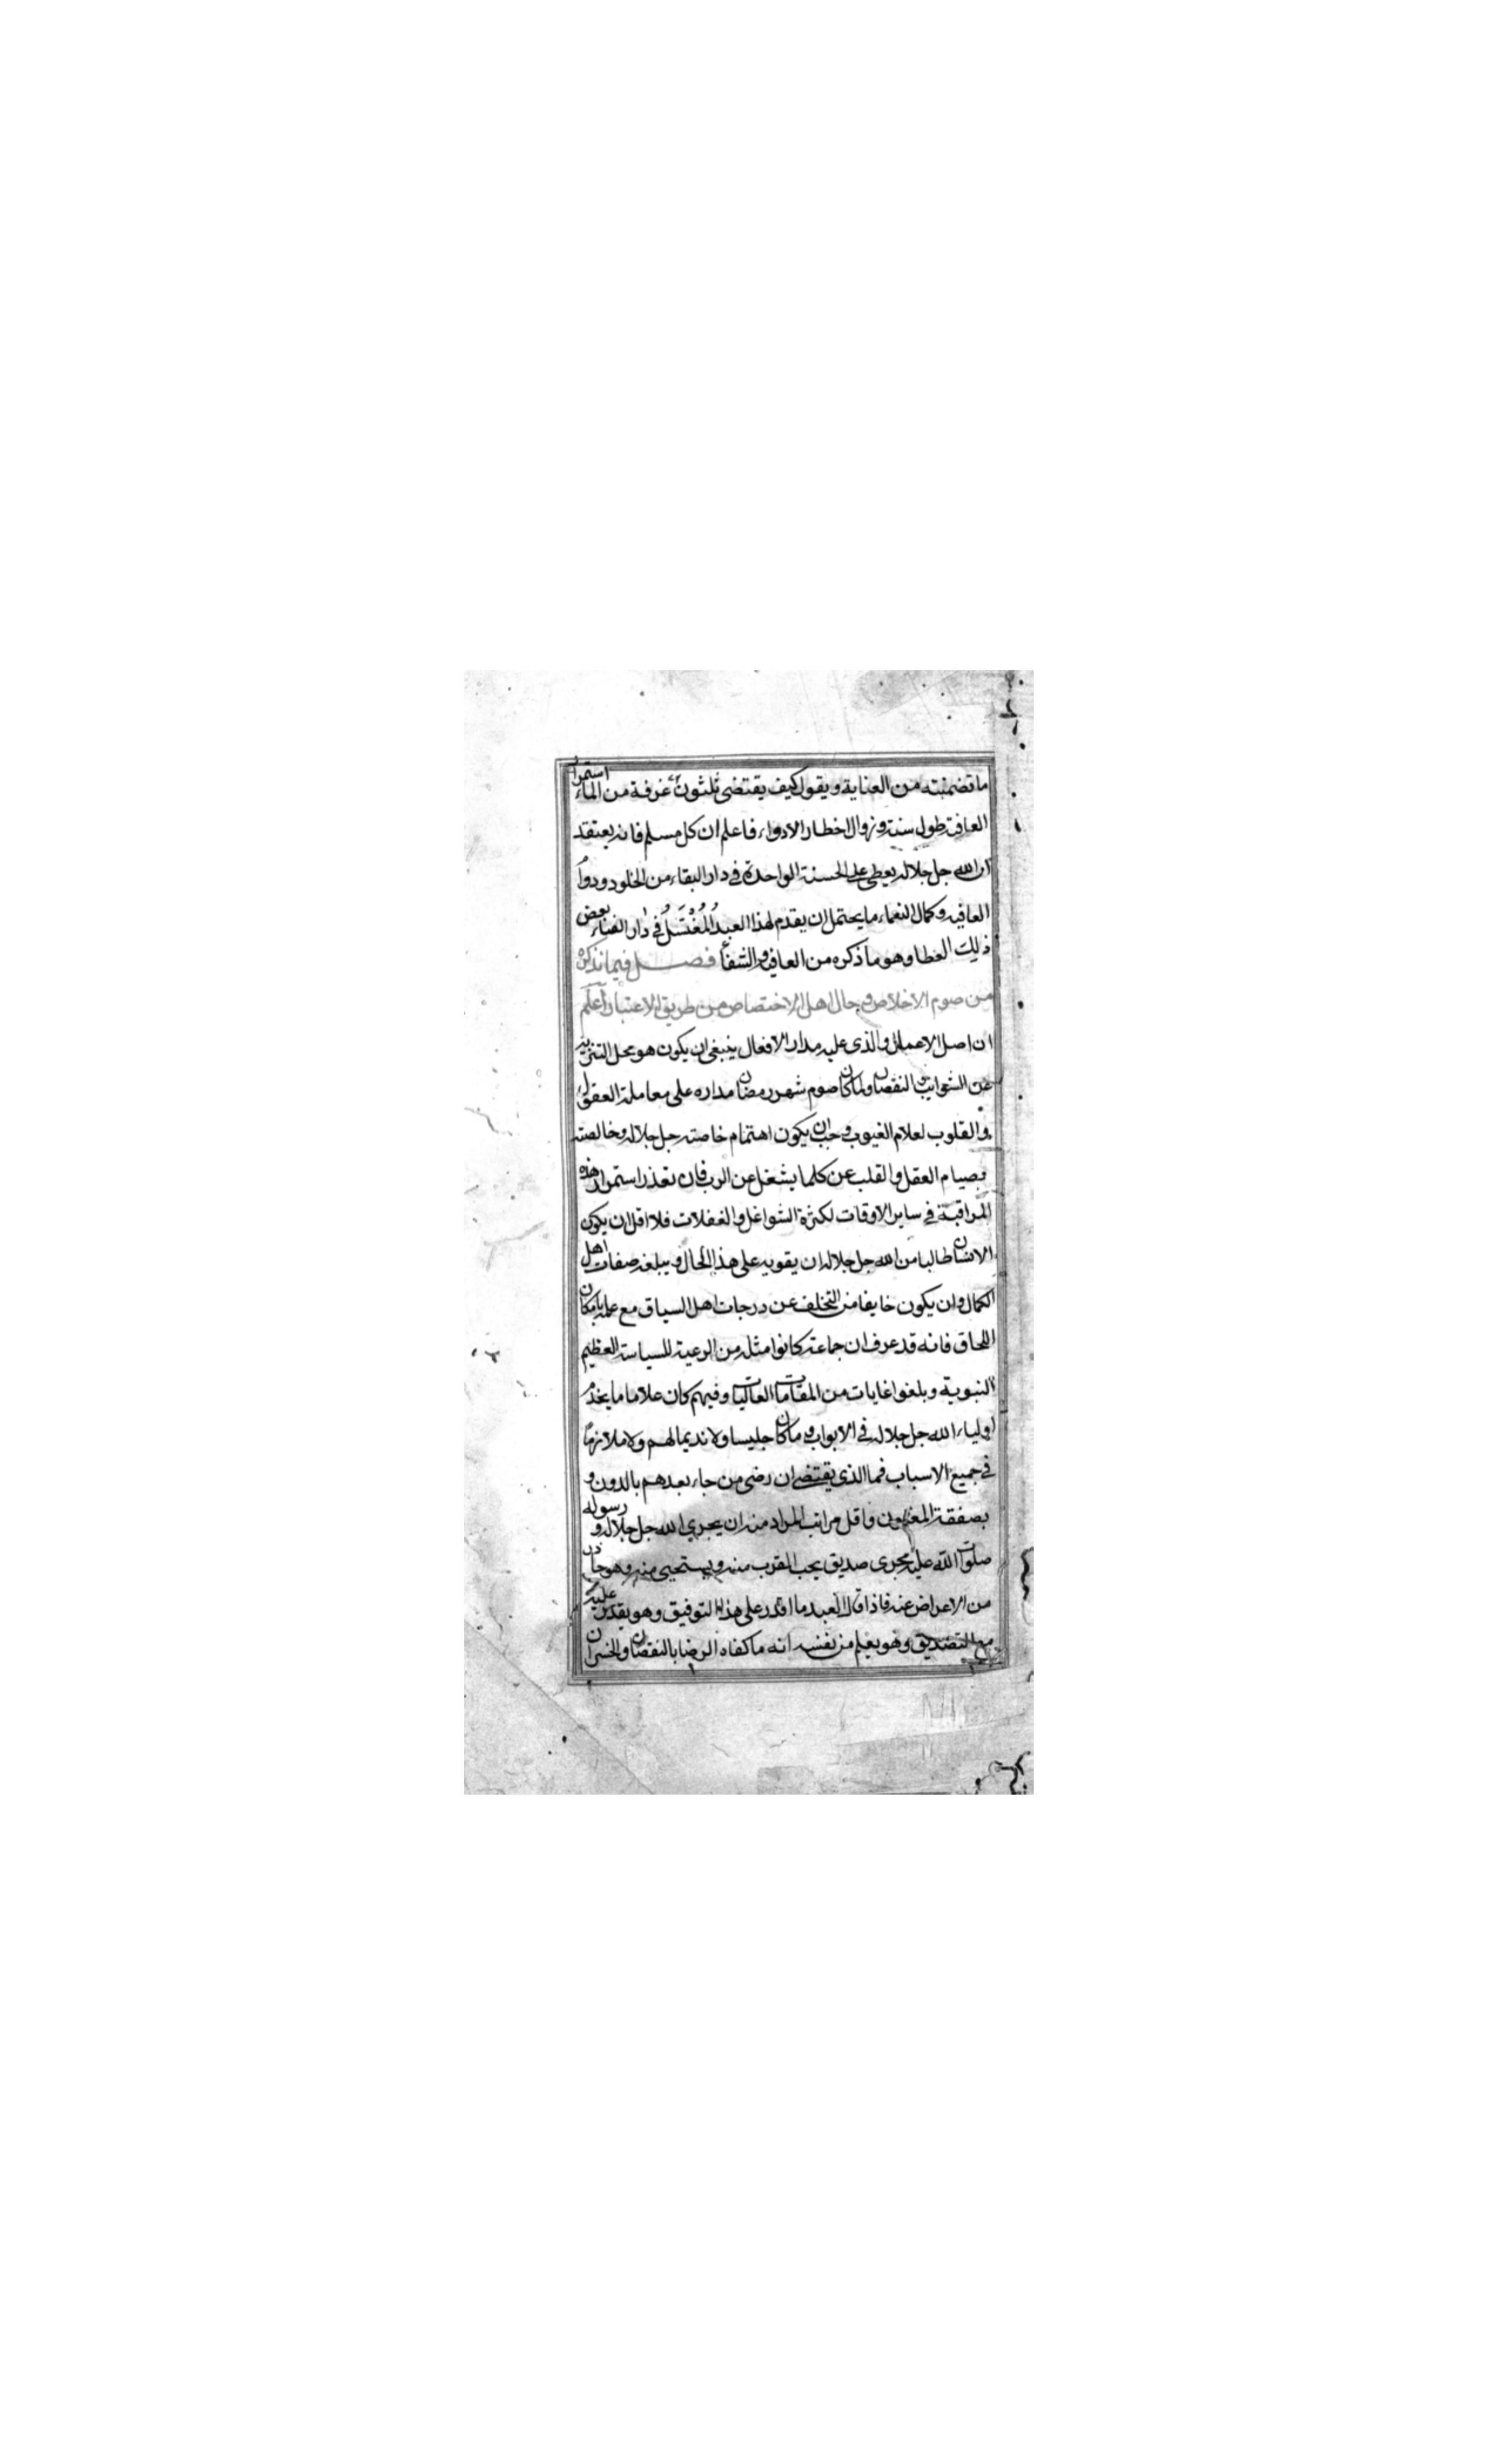 ما تضمنته من العناية ويقول كيف يقتضى ثلثون غرفة من الماء استمرار
العافية طول سنته وزوال اخطار الادواء فاعلم ان كل مسلم فانه يعتقد
ان الله جل جلاله يعطى على الحسنة الواحدة فى دار البقاء من الخلود ودوام
العافيه وكمال النعماء ما يحتمل ان يقدم لهذا العبد المغتسل فى دار الفناء بعض
ذلك العطا وهو ما ذكره من العافية والشفا فصل فيما نذكره
من صوم الاخلاص وحال اهل الاختصاص من طريق الاعتبار اعلم
ان اصل الاعمال والذى عليه مدار الافعال ينبغى ان يكون هو محل التنزيه
عن الشوايب والنقصان ولما كان صوم شهر رمضان مداره على معاملة العقول
والقلوب لعلام الغيوب وجب ان يكون اهتمام خاصته جل جلاله وخالصته
بصيام العقل والقلب عن كلما يشغل عن الرب فان تعذر استمرار هذه
المراقبة فى ساير الاوقات لكثرة الشواغل والغفلات فلا اقل ان يكون
الانسان طالبا من الله جل جلاله ان يقويه على هذا الحال ويبلغه صفات اهل
الكمال وان يكون خايفا من التخلف عن درجات اهل السباق مع علمه بامكان
اللحاق فانه قد عرف ان جماعة كانوا مثله من الرعية للسياسة العظيم
النبوية وبلغوا غايات من المقامات العاليات وفيهم كان غلاما ما يخدم
اولياء الله جل جلاله فى الابواب وما كان جليسا ولا نديما لهم ولا ملازما
فى جميع الاسباب فما الذى يقتضى ان رضى من جاء بعدهم بالدون و
بصفقة المغبون واقل مراتب المراد منه ان يجرى الله جل جلاله ورسوله
صلوات الله عليه مجرى صديق يحب القرب منه ويستحيى منه وهو حاذر
من الاعراض عنه فاذا قال العبد ما اقدر على هذا التوفيق وهو يقدر عليه
مع التصديق وهو يعلم من نفسه انه ما كفاه الرضا بالنقصان والخسران